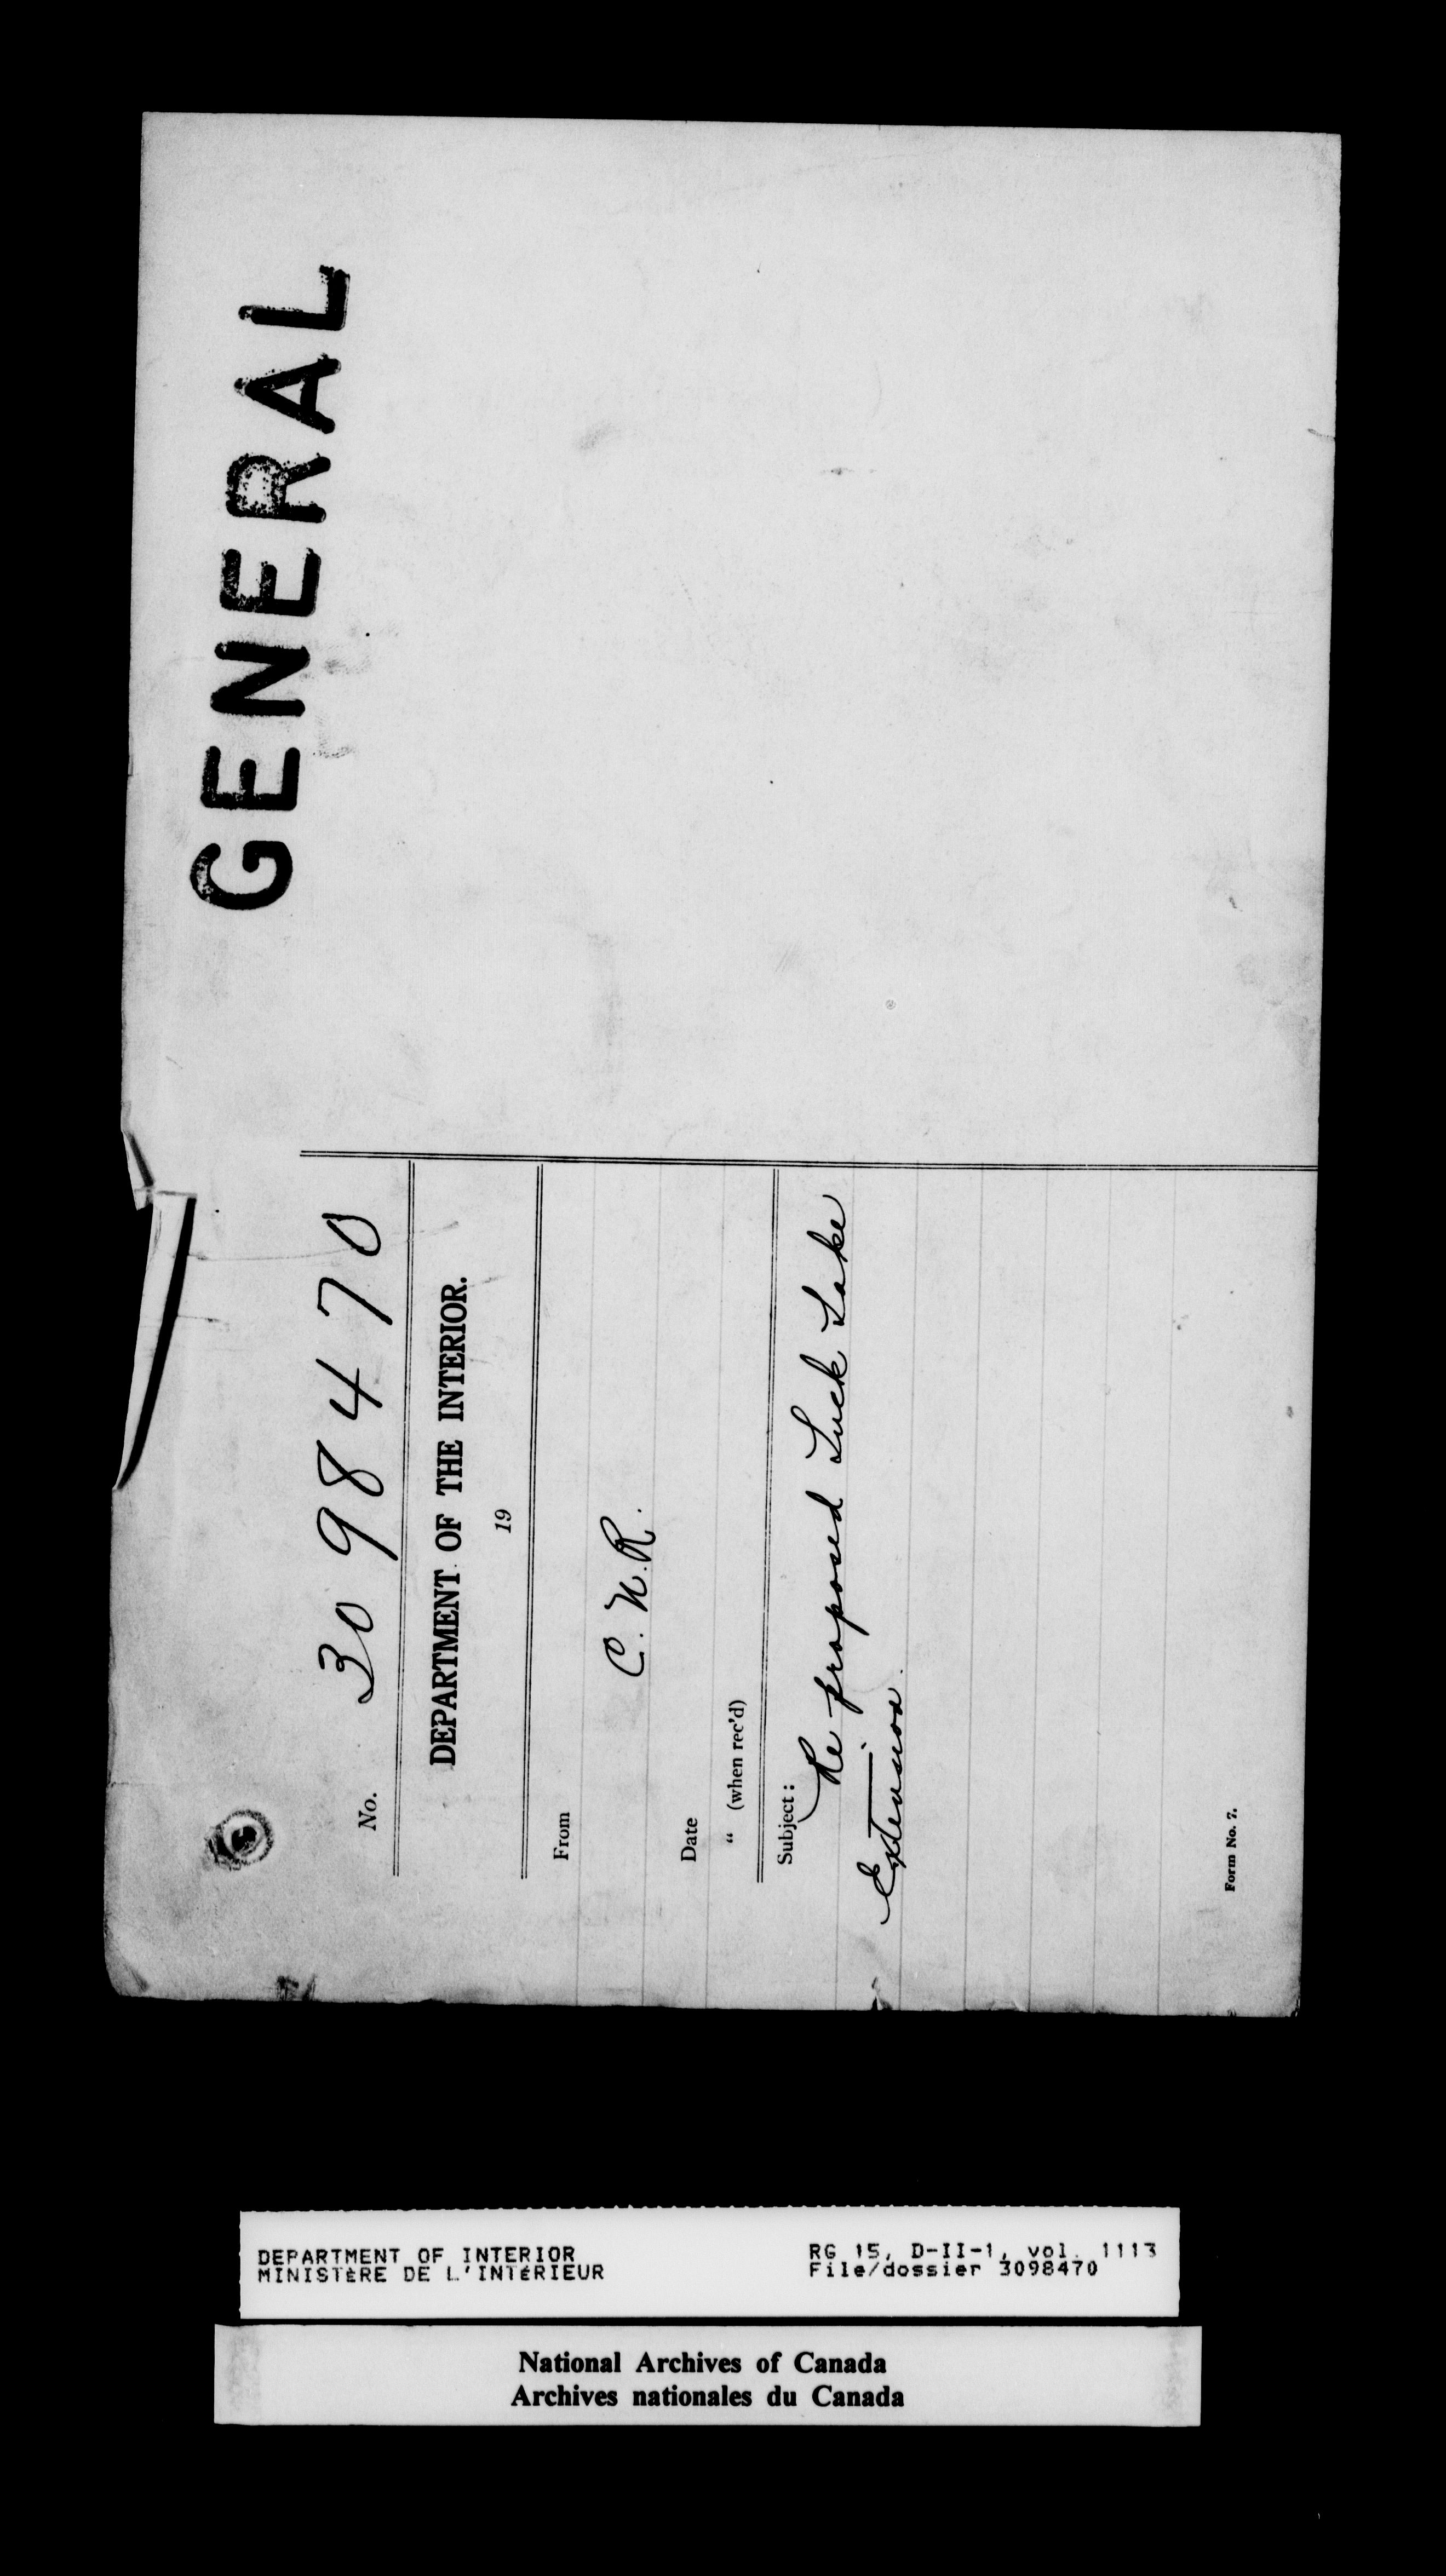 GENERAL
No. 3098470
DEPARTMENT OF THE INTERIOR.
19
From
C. N. R.
Date
" (when rec'd)
Subject:
Re proposed Luck Lake
Extension.
Form No. 7.
DEPARTMENT OF INTERIOR
MINISTÈRE DE L'INTÉRIEUR
RG 15, D-II-1, vol. 1113
File/dossier 3098470
National Archives of Canada
Archives nationales du Canada